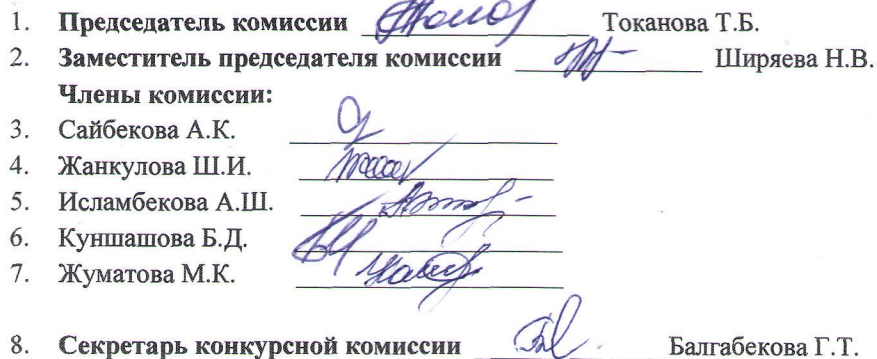 1. Председатель комиссии Токанова Т.Б.
2. Заместитель председателя комиссии Ширяева Н.В.
Члены комиссии:
3. Сайбекова А.К.
4. Жанкулова Ш.И.
5. Исламбекова А.Ш.
6. Куншашова Б.Д.
7. Жуматова М.К.
8. Секретарь конкурсной комиссии Балгабекова Г.Т.